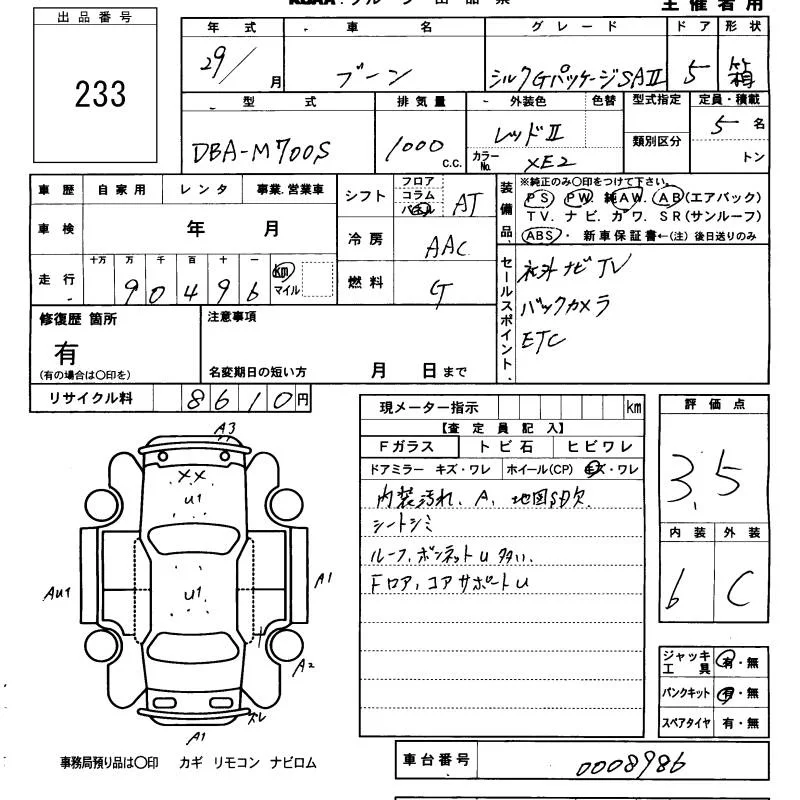 主催者用
出品番号
233
年式 車名 グレード ドア 形状
29/ 月 ブーン シルクGパッケージSAII 5 箱
型式 排気量 外装色 色替 型式指定 定員・積載
DBA-M700S 1000 C.C. レッドII 類別区分 5名
カラーNo. XE2 トン
車歴 自家用 レンタ 事業.営業車
車検 年 月
走行 十万 万 千 百 十 一 km マイル
90496
シフト フロア コラム パネル AT
冷房 AAC
燃料 G
装備品 ※純正のみ○印をつけて下さい。
PS PW. 純AW. AB(エアバック)
TV. ナビ. カワ. SR(サンルーフ)
ABS・ 新車保証書←(注)後日送りのみ
セールスポイント
社外ナビTV
バックカメラ
ETC
修復歴 箇所
有
(有の場合は○印を)
注意事項
名変期日の短い方 月 日まで
リサイクル料 8610円
現メーター指示 km
【査定員記入】
Fガラス トビ石 ヒビワレ
ドアミラー キズ・ワレ ホイール(CP) キズ・ワレ
内装汚れ、A、地図SD欠
シートシミ
ルーフ、ボンネットU多い
Fロア、コアサポートU
評価点
3.5
内装 外装
b C
A3
XX
U1
U1
AU1
A1
A2
ズレ
A1
ジャッキ工具 有・無
パンクキット 有・無
スペアタイヤ 有・無
事務局預り品は○印 カギ リモコン ナビロム
車台番号 0008986